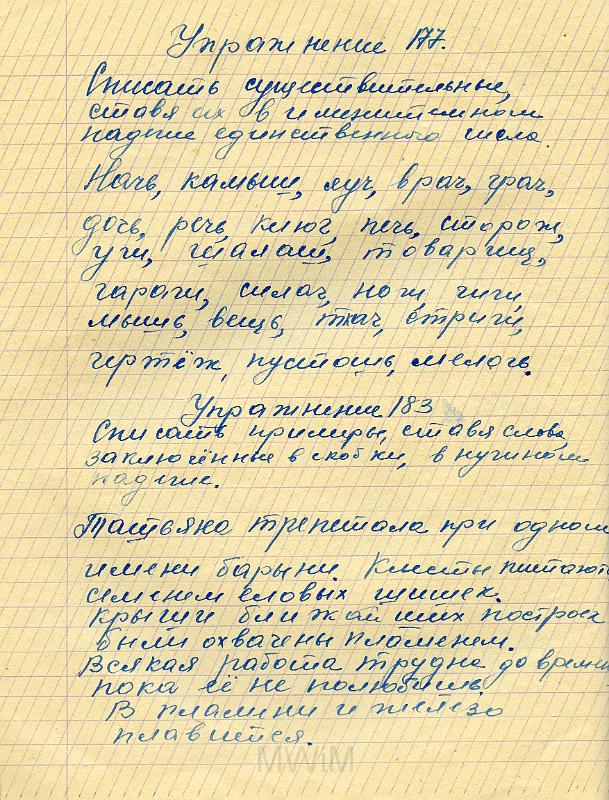 Упражнение 177.
Списать существительные,
ставя их в именительном
падеже единственного числа.
Ночь, камыш, луч, врач, грач,
дочь, речь, ключ, печь, сторож,
уж, шалаш, товарищ,
гараж, силач, нож, чиж,
мышь, вещь, ткач, стриж,
чертёж, пустошь, мелочь.
Упражнение 183
Списать примеры, ставя слова,
заключённые в скобки, в нужном
падеже.
Татьяна трепетала при одном
имени барыни. Клесты питаются
семенем еловых шишек.
Крыши ближайших построек
были охвачены пламенем.
Всякая работа трудна до времени
пока её не полюбишь.
В пламени и железо
плавится.
MWiM